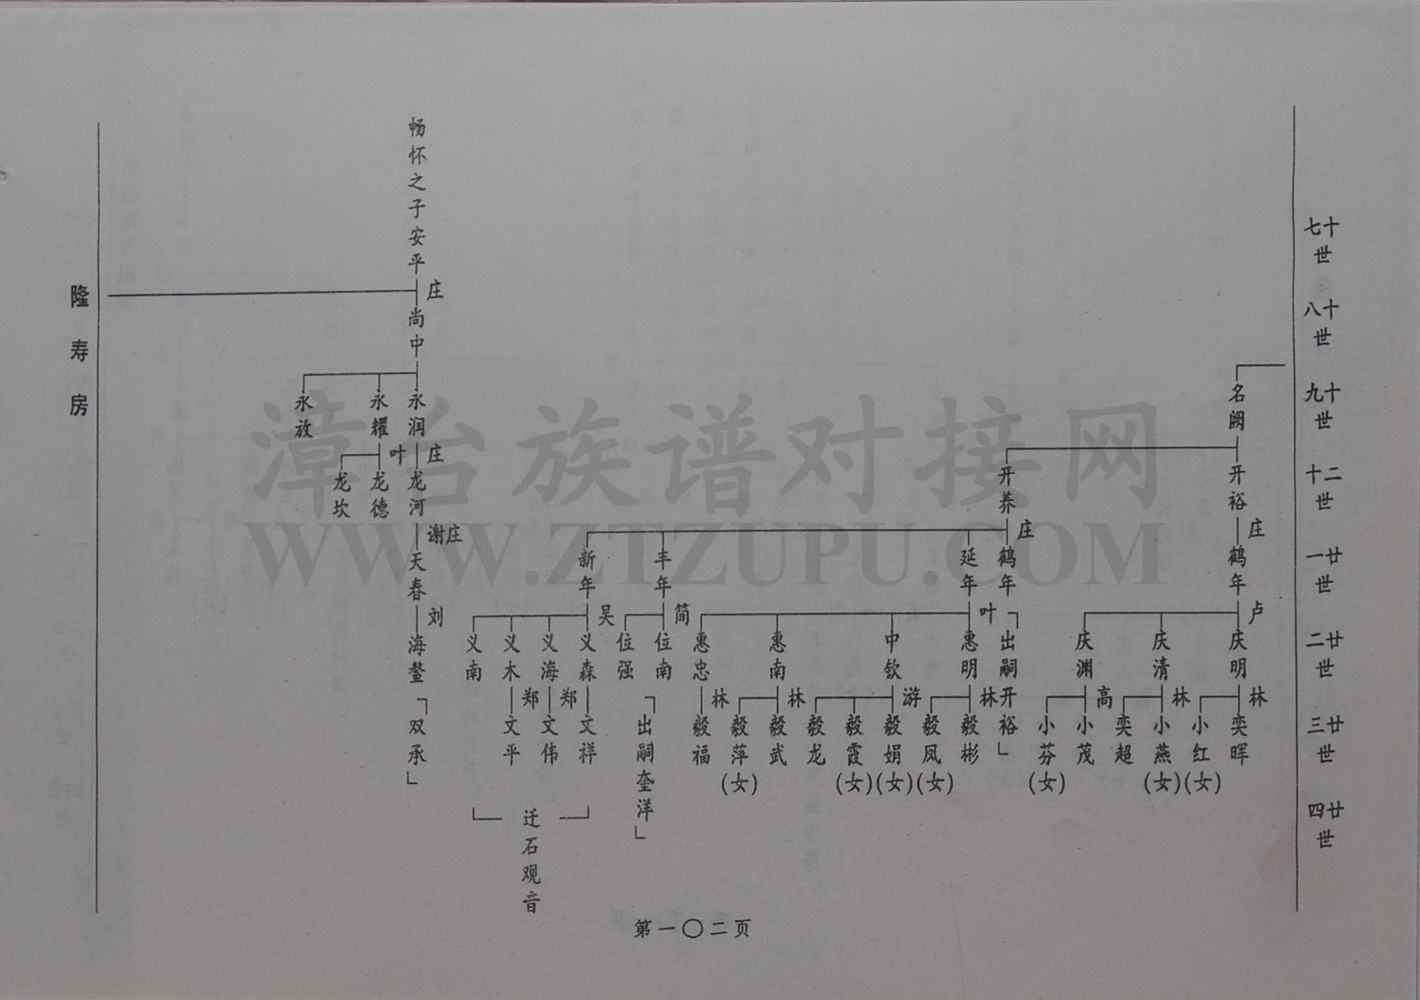 十七世
十八世
十九世
二十世
廿一世
廿二世
廿三世
廿四世
名阙
开裕
开养
庄
鹤年
庄
鹤年
延年
丰年
新年
卢
庆明
庆清
庆渊
林
奕晖
小红(女)
林
小燕(女)
奕超
高
小茂
小芬(女)
出嗣开裕
叶
惠明
中钦
惠南
惠忠
林
毅彬
毅凤(女)
游
毅娟(女)
毅霞(女)
毅龙
林
毅武
毅萍(女)
林
毅福
简
位南
位强
出嗣奎洋
吴
义森
义海
义木
义南
郑
文祥
郑
文伟
文平
迁石观音
畅怀之子安平
庄
尚中
永润
永耀
永放
庄
龙河
叶
龙德
龙坎
谢庄
天春
刘
海鳌
双承
隆寿房
第一〇二页
漳台族谱对接网
WWW.ZTZUPU.COM